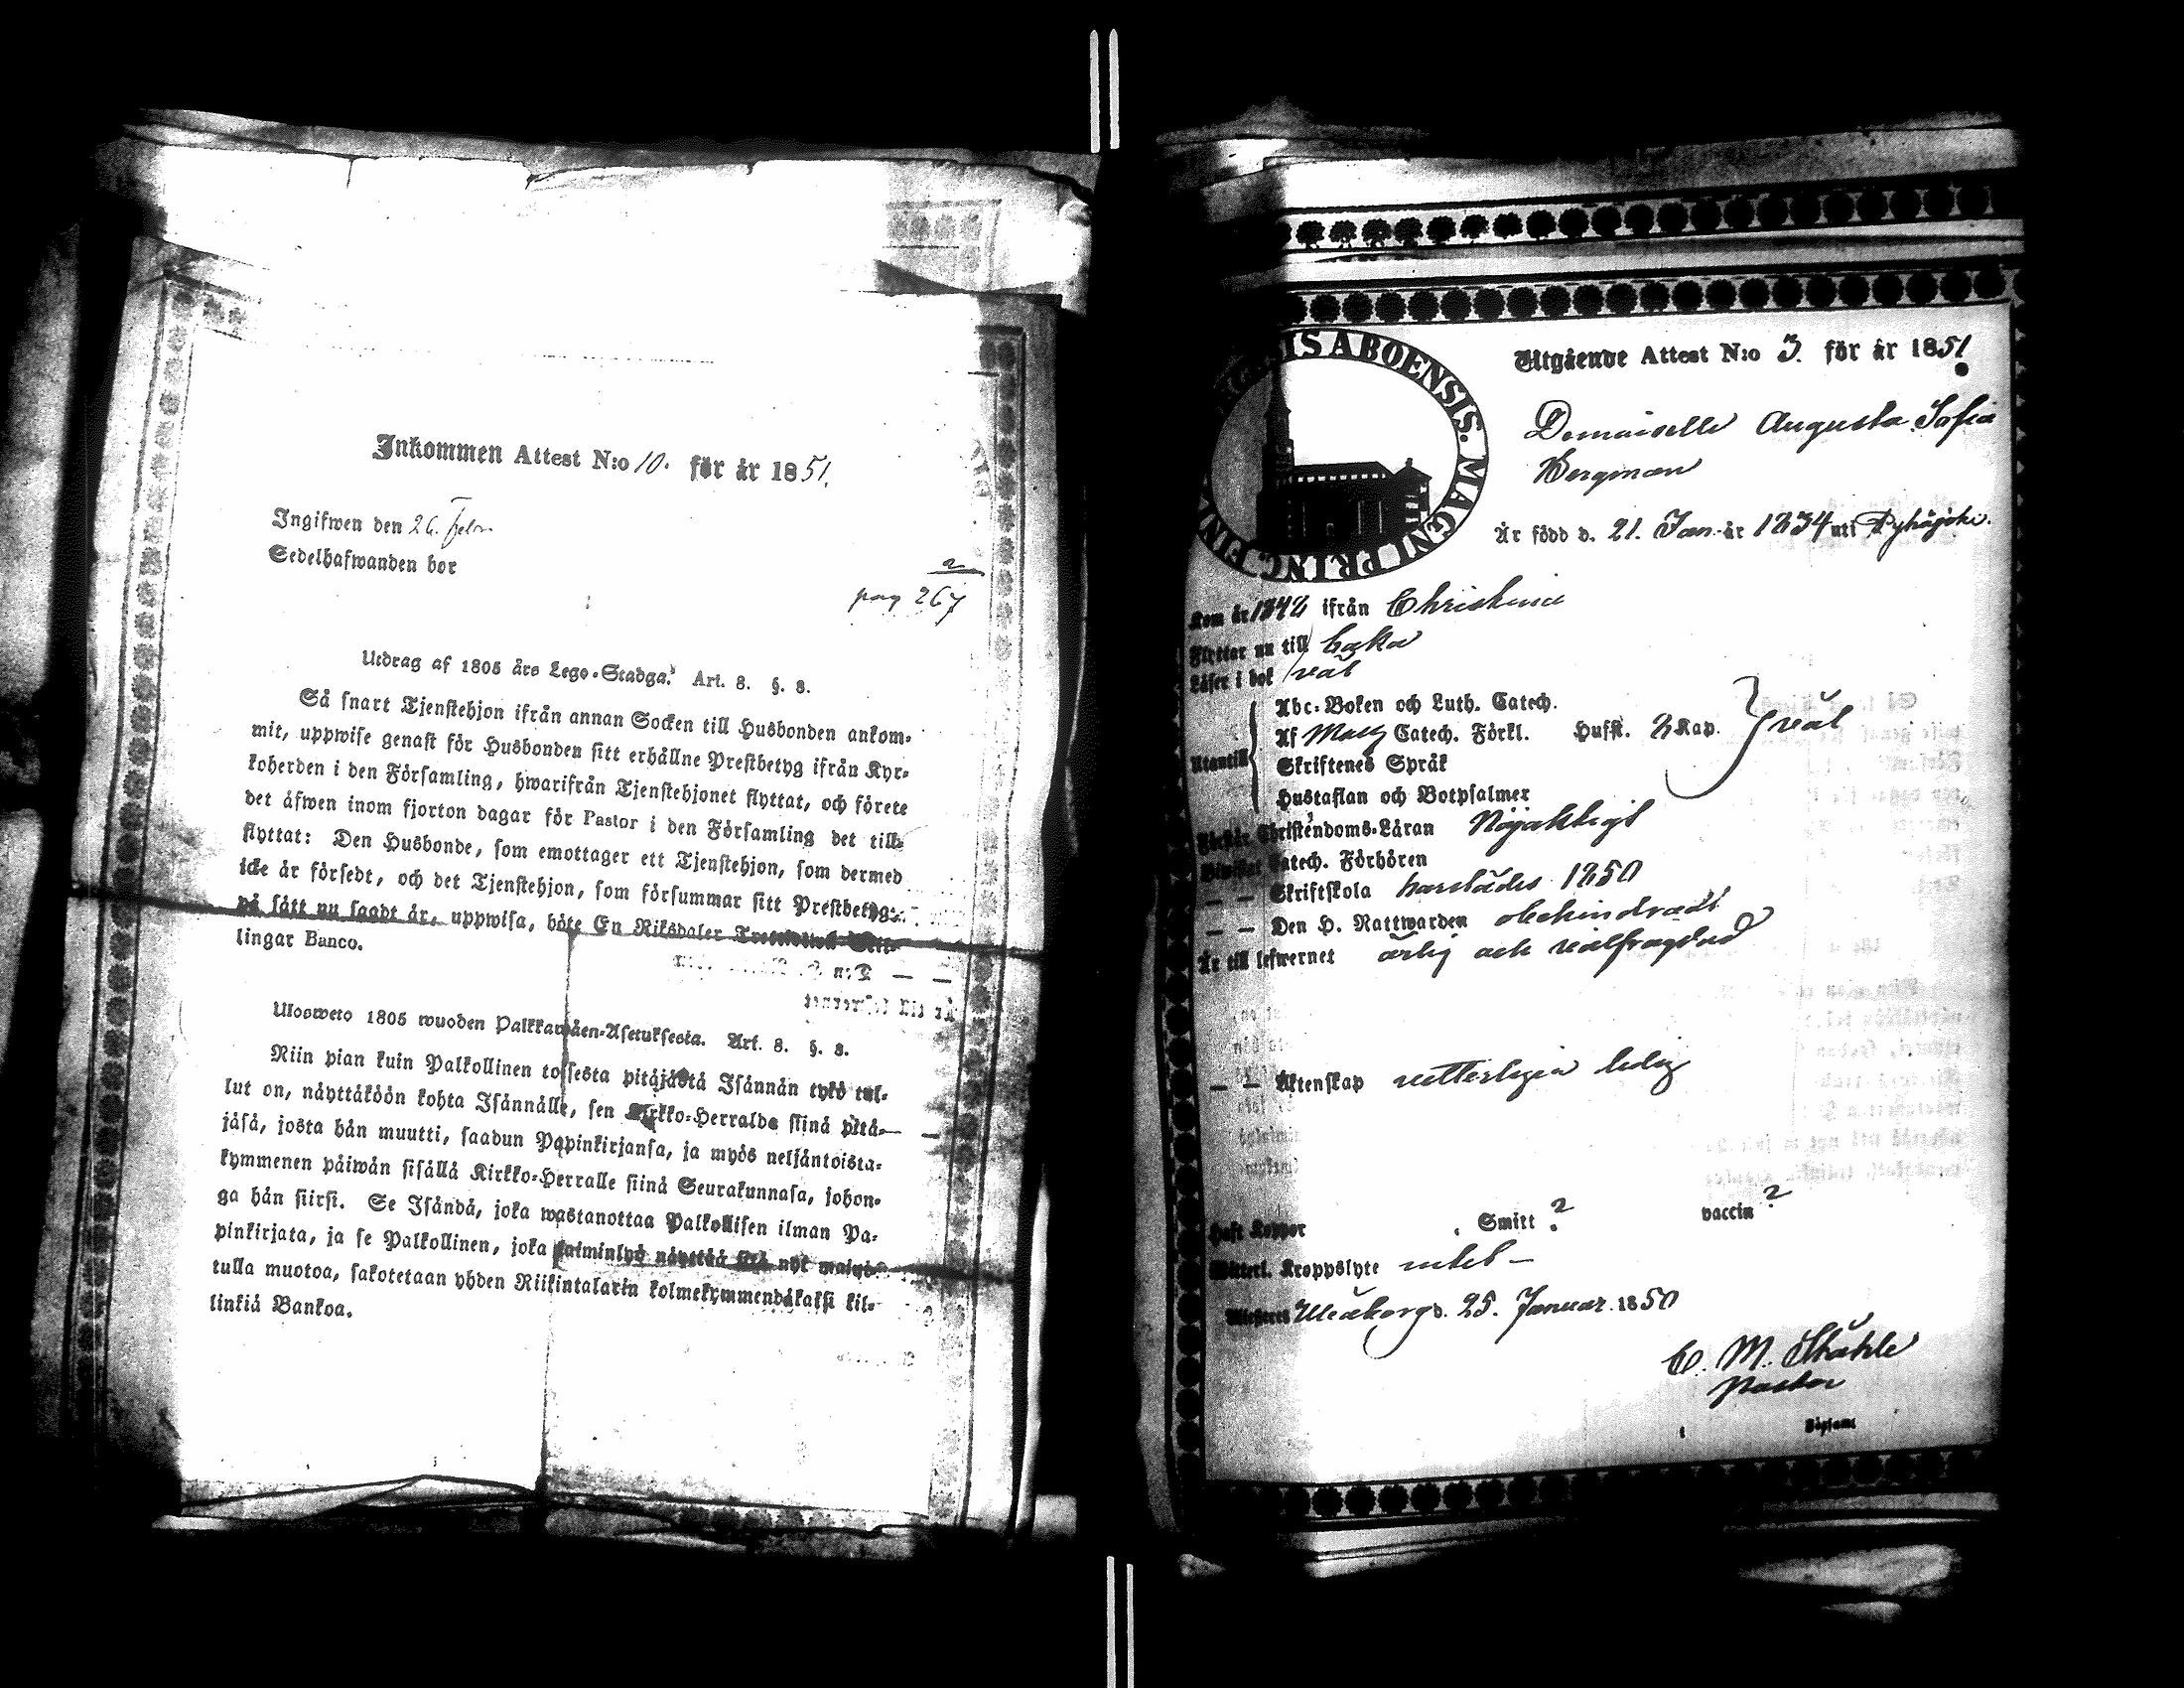 Inkommen Attest N:o 10. för år 1851.
Ingifwen den 26. Febr.
Sedelhafwanden bor
2
pag 267
Utdrag af 1805 års Lego-Stadga. Art. 8. §. 8.
Så snart Tjenstehjon ifrån annan Socken till Husbonden ankom-
mit, uppwise genast för Husbonden sitt erhållne Prestbetyg ifrån Kyr-
koherden i den Församling, hwarifrån Tjenstehjonet flyttat, och förete
det äfwen inom fjorton dagar för Pastor i den Församling det till-
flyttat: Den Husbonde, som emottager ett Tjenstehjon, som dermed
icke är försedt, och det Tjenstehjon, som försummar sitt Prestbetyg,
på sätt nu sagdt är, uppwisa, böte En Riksdaler
lingar Banco.
Ulosweto 1805 wuoden Palkkawäen-Asetuksesta. Art. 8. §. 8.
Niin pian kuin Palkollinen toisesta pitäjästä Isännän tykö tul-
lut on, näyttäköön kohta Isännälle, sen Kirkko-Herralda siinä pitä-
jäsä, josta hän muutti, saadun Papinkirjansa, ja myös neljäntoista-
kymmenen päiwän sisällä Kirkko-Herralle siinä Seurakunnasa, johon-
ga hän siirsi. Se Isändä, joka wastanottaa Palkollisen ilman Pa-
pinkirjata, ja se Palkollinen, joka laiminlyö näyttää sitä nyt maini-
tulla muotoa, sakotetaan yhden Riikintalarin kolmekymmendäkaksi kil-
linkiä Bankoa.
IS ABOENSIS. MAGNI PRINC. FIN
Utgående Attest N:o 3. för år 1851
Demoiselle Augusta Sofia
Bergman
Är född d. 21. Jan. år 1834 uti Pyhäjoki.
Kom år 1842 ifrån Christina
Flyttar nu till
Läser i bok väl
Utantill
Abc-Boken och Luth. Catech.
Af Catech. Förkl. Husst. 2 Kap. väl
Skriftenes Språk
Hustaflan och Botpsalmer
Förstår Christendoms-Läran Nöjaktigt
Biwistat Catech. Förhören
— — Skriftskola härstädes 1850
— — Den H. Nattwarden obehindradt
Är till lefwernet ärlig och välfrägdad
— — Äktenskap vetterligen ledig
Haft Koppor . Smitt ? vaccin ?
Witterl. Kroppslyte intet —
Uleåborg d. 25. Januar. 1850
C. M. Ståhle
Pastor